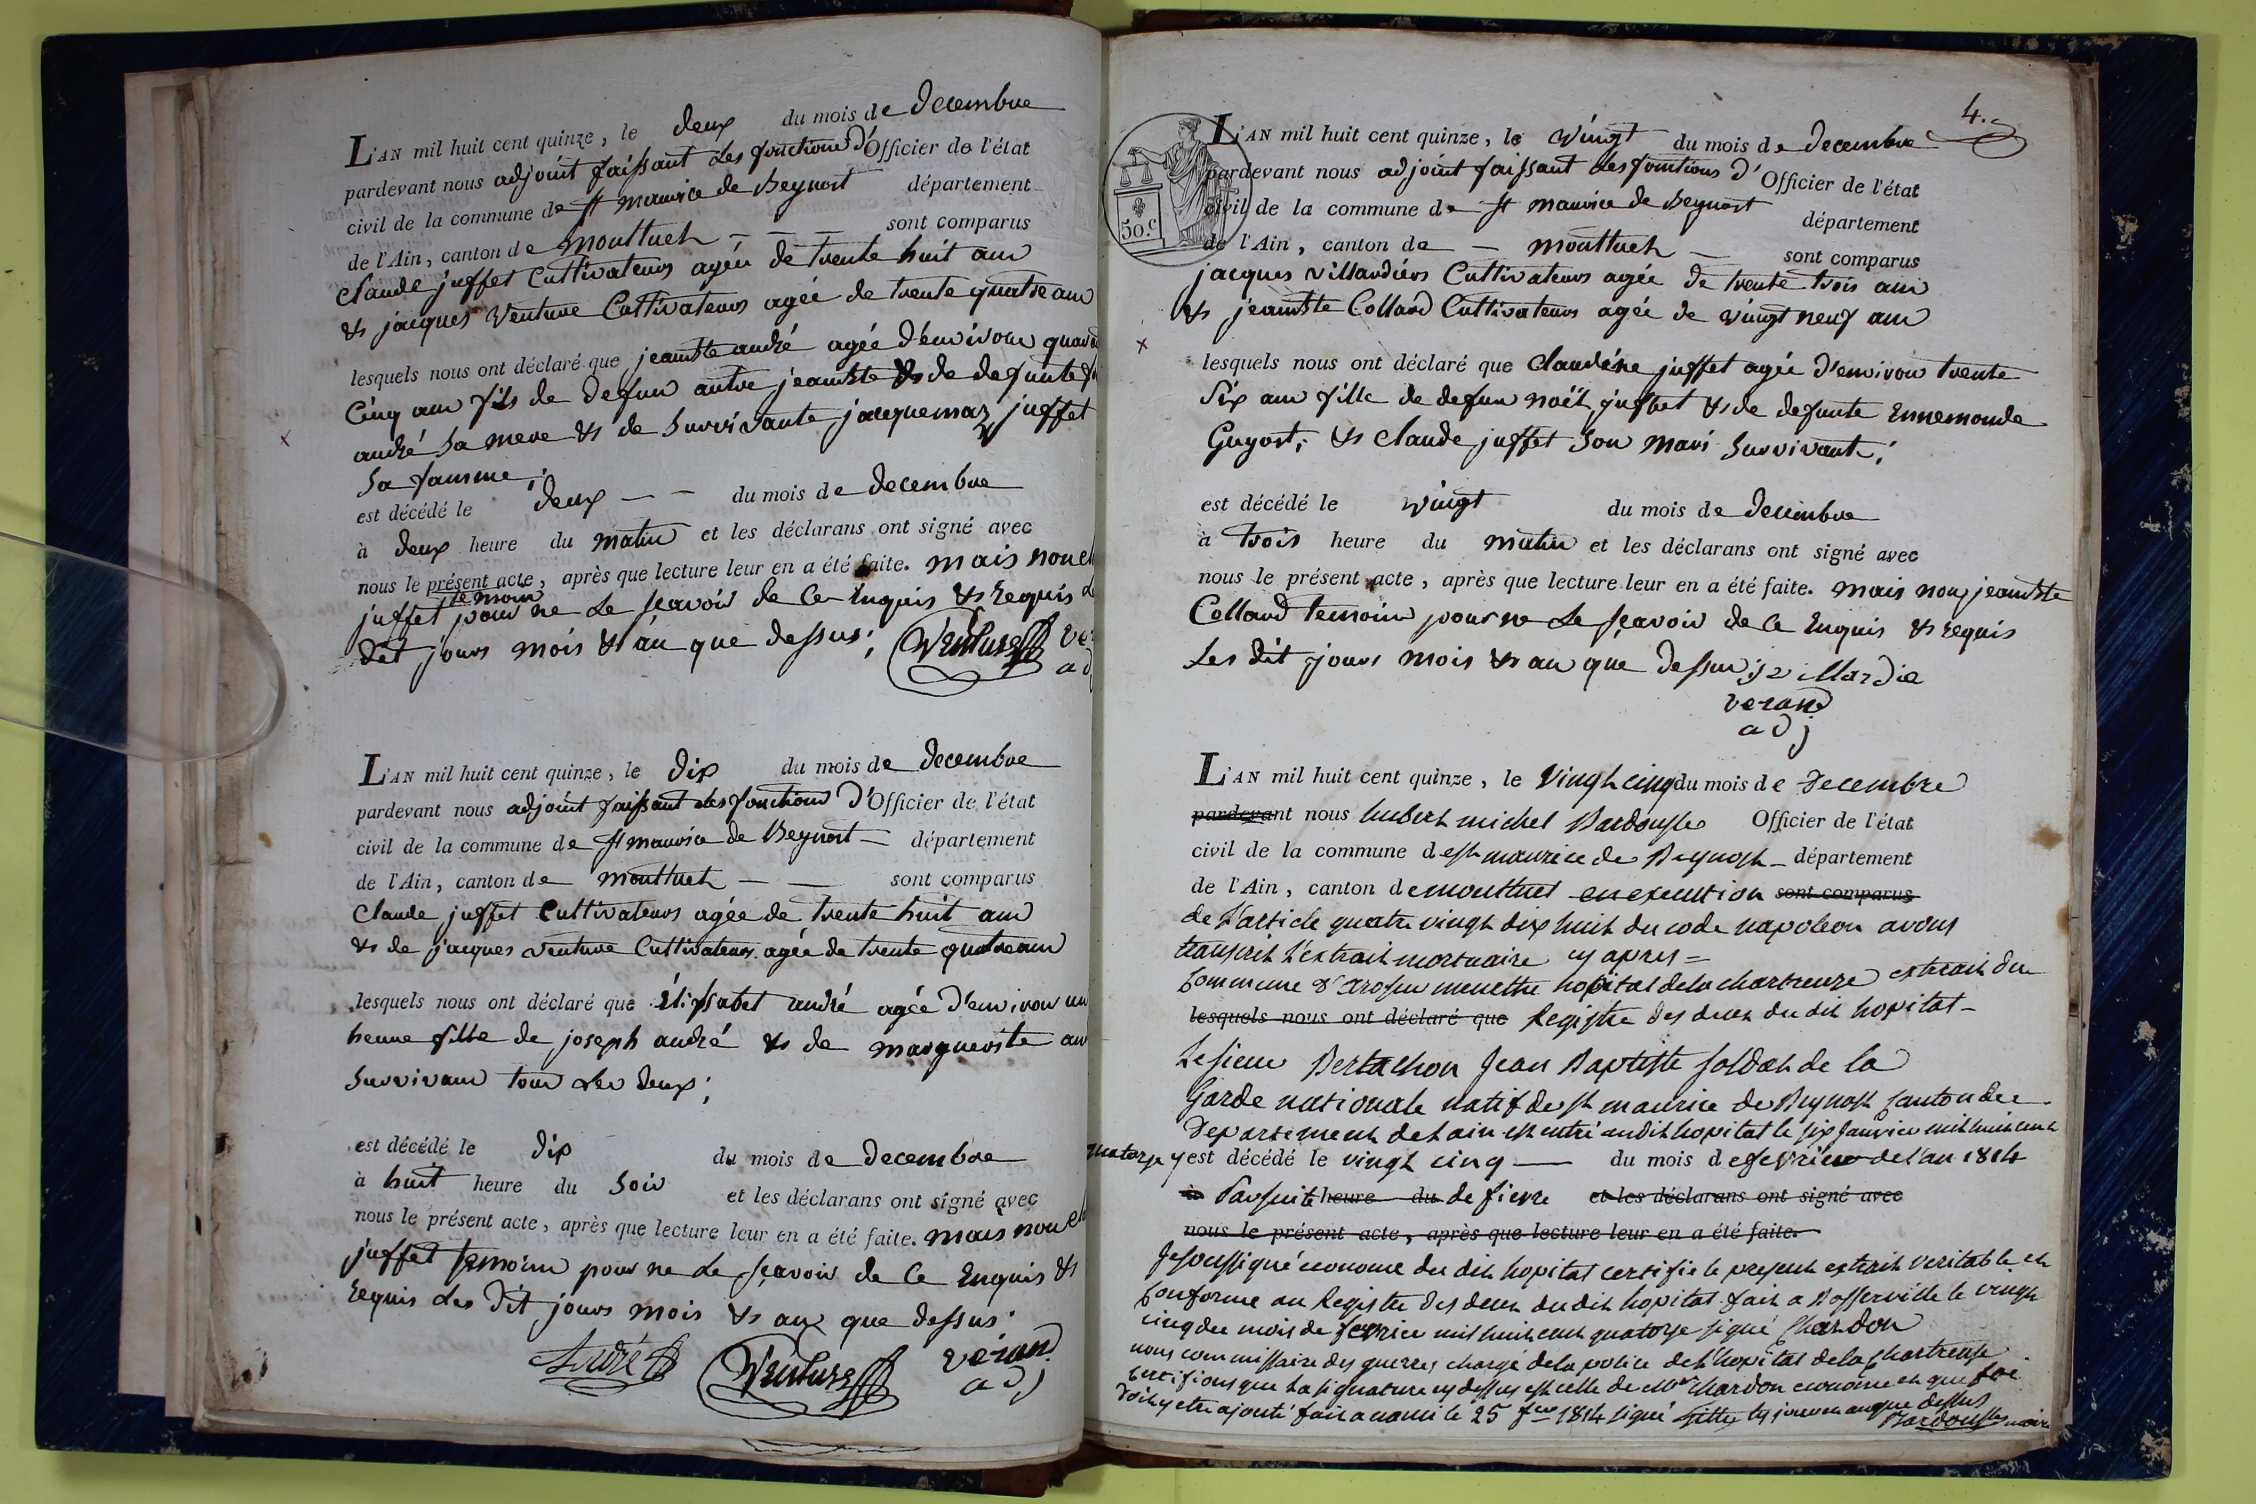 L'AN mil huit cent quinze, le deux du mois de decembre
pardevant nous adjoint faissant les fonctions d'Officier de l'état
civil de la commune de st maurice de Beynost département
de l'Ain, canton de montluel - - - sont comparus
claude juffet Cultivateurs agée de trente huit ans
& jacques Venture Cultivateurs agée de trente quatre ans
lesquels nous ont déclaré que jeanbte andré agée d'environ
Cinq ans fils de defun autre jeanbte & de defunte
andré sa mere & de survivante jacquemaz juffet
sa famme;
est décédé le deux - - du mois de decembre
à deux heure du matin et les déclarans ont signé avec
nous le présent acte, après que lecture leur en a été faite. mais non
juffet temoin pour ne le sçavoir de Ce inquis & requis
dit jours mois & an que dessus; Venture
L'AN mil huit cent quinze, le dix du mois de decembre
pardevant nous adjoint faissant les fonctions d'Officier de l'état
civil de la commune de st maurice de Beynost - département
de l'Ain, canton de montluel - - sont comparus
claude juffet Cultivateurs agée de trente huit ans
& de jacques venture Cultivateurs agée de trente quatre ans
lesquels nous ont déclaré que Elissabet andré agée d'environ
heure fille de joseph andré & de marguerite
survivans tous les deux;
est décédé le dix du mois de decembre
à huit heure du soir et les déclarans ont signé avec
nous le présent acte, après que lecture leur en a été faite. mais non
juffet temoin pour ne le sçavoir de Ce Enquis &
requis les dit jours mois & an que dessus.
André Venture verand
adj
4.
50.c
L'AN mil huit cent quinze, le vingt du mois de decembre
pardevant nous adjoint faissant les fonctions d'Officier de l'état
civil de la commune de st maurice de Beynost département
de l'Ain, canton de - montluel - sont comparus
jacques villardiers Cultivateurs agée de trente trois ans
& jeanbte Collard Cultivateurs agée de vingt neuf ans
lesquels nous ont déclaré que claudine juffet agée d'environ trente
six ans fille de defun noël juffet & de defunte Ennemonde
Guyost; & claude juffet son mari survivant;
est décédé le vingt du mois de decembre
à trois heure du matin et les déclarans ont signé avec
nous le présent acte, après que lecture leur en a été faite. mais non jeanbte
Collard temoin pour ne le sçavoir de Ce Enquis & requis
les dit jours mois & an que dessus; villardie
verand
adj
L'AN mil huit cent quinze, le vingt cinq du mois de Decembre
pardevant nous hubert michel Bardousse Officier de l'état
civil de la commune de st maurice de Beynost - département
de l'Ain, canton de montluel en execution sont comparus
de l'article quatre vingt dix huit du code napoleon avons
transcrit l'extrait mortuaire cy apres =
Commune d'art sur meurthe hopital de la chartreuze extrait du
lesquels nous ont déclaré que Registre des deces du dit hopital -
Le sieur Bertachon Jean Baptiste soldat de la
Garde nationale natif de st maurice de Beynost canton de
Departement de l'ain est entré au dit hopital le six Janvier mil huit cent
quatorze y est décédé le vingt cinq - du mois de fevrier de l'an 1814
à Par suite heure du de fievre et les déclarans ont signé avec
nous le présent acte, après que lecture leur en a été faite.
Je soussigné econome du dit hopital certifie le present extrait veritable et
conforme au Registre des deces du dit hopital fait a Bosserville le vingt
cinq du mois de fevrier mil huit cent quatorze signé Chardon
nous commissaire des guerres chargé de la police de l'hopital de la Chartreuse
certifions que la signature cy dessus est celle de Mr Chardon econome et que foi
doit y etre ajouté fait a nanci le 25 fevr 1814 signé les jour et an que dessus
Bardousse maire